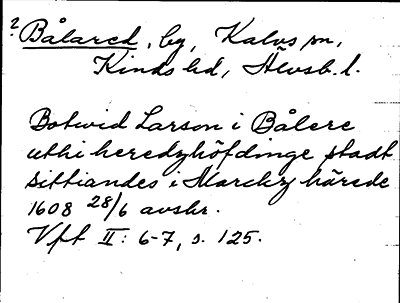 ? Bålared, by, Kalvs sn,
Kinds hd, Älvsb. l.
Botwid Larson i Bålere
uthi heredzhöfdinge stadt
sittiandes i Marckz härede
1608 28/6 avskr.
Vfft II: 6-7, s. 125.